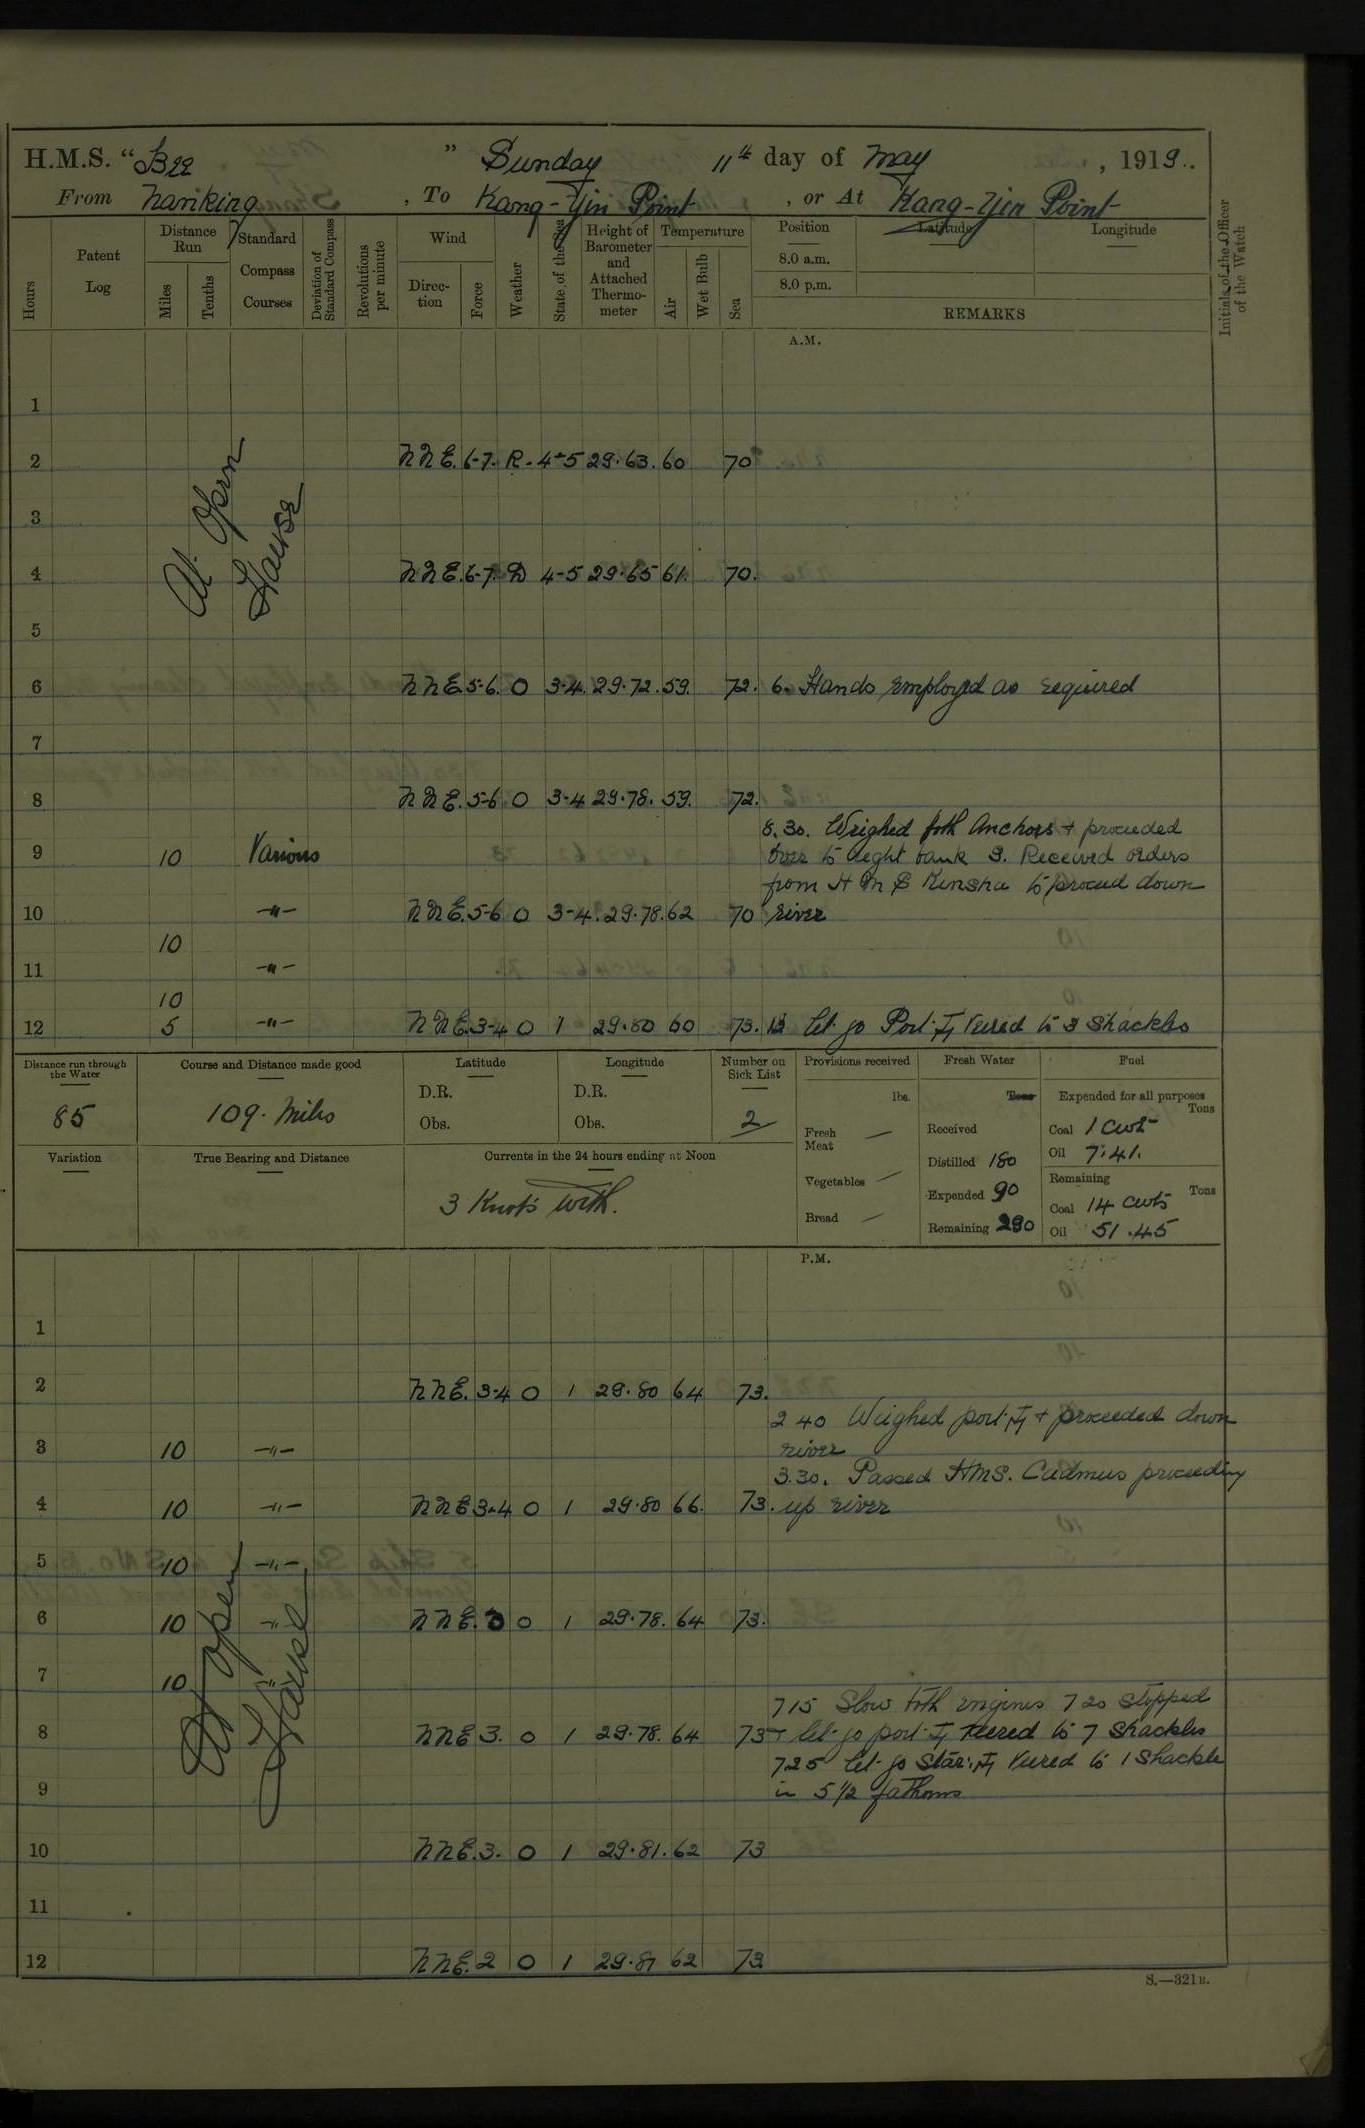 H.M.S. “Bee ” Sunday 11th day of May , 1919..
From Nanking , To Kang-Yin Point , or At Kang-Yin Point
Hours
Patent Log
Distance Run
Miles
Tenths
Standard Compass Courses
Deviation of Standard Compass
Revolutions per minute
Wind
Direc-tion
Force
Weather
State of the Sea
Height of Barometer and Attached Thermo-meter
Temperature
Air
Wet Bulb
Sea
Position
8.0 a.m.
8.0 p.m.
Latitude
Longitude
REMARKS
Initials of the Officer of the Watch
A.M.
At Open Hawse
1
2 NNE. 6-7. R. 4-5 29.63. 60 70
3
4 NNE. 6-7. D 4-5 29.65 61. 70.
5
6 NNE. 5-6. O 3-4. 29.72. 59. 72. 6. Hands employed as required
7
8 NNE. 5-6 O 3-4 29.78. 59. 72.
8.30. Weighed both Anchors + proceeded
9 10 Various over to right bank 9. Received orders
from HMS Kinsha to proceed down
10 -"- NNE. 5-6 O 3-4. 29.78. 62 70 river
10
11 -"-
10
12 5 -"- NNE. 3-4 O 1 29.80 60 73. 12 let go Port Veered to 3 shackles
Distance run through the Water
85
Course and Distance made good
109. Miles
Latitude
D.R.
Obs.
Longitude
D.R.
Obs.
Number on Sick List
2
Variation
True Bearing and Distance
Currents in the 24 hours ending at Noon
3 Knots with.
Provisions received
lbs.
Fresh Meat —
Vegetables —
Bread —
Fresh Water
Tons
Received
Distilled 180
Expended 90
Remaining 290
Fuel
Expended for all purposes
Tons
Coal 1 cwt
Oil 7.41.
Remaining
Tons
Coal 14 cwts
Oil 51.45
P.M.
1
2 NNE. 3-4 O 1 29.80 64 73.
2 40 Weighed port + proceeded down
3 10 -"- river
3.30. Passed HMS. Cadmus proceeding
4 10 -"- NNE 3-4 O 1 29.80 66. 73. up river
5 10 -"-
At Open Hawse
6 10 -"- NNE. 3 O 1 29.78. 64 73.
7 10 "
7 15 Slow both engines 7 20 stopped
8 NNE 3. O 1 29.78. 64 73 + let go port Veered to 7 shackles
7 25 let go Star: Veered to 1 Shackle
9 in 5 1/2 fathoms
10 NNE. 3. O 1 29.81. 62 73
11
12 NNE. 2 O 1 29.81 62 73
S.—321B.